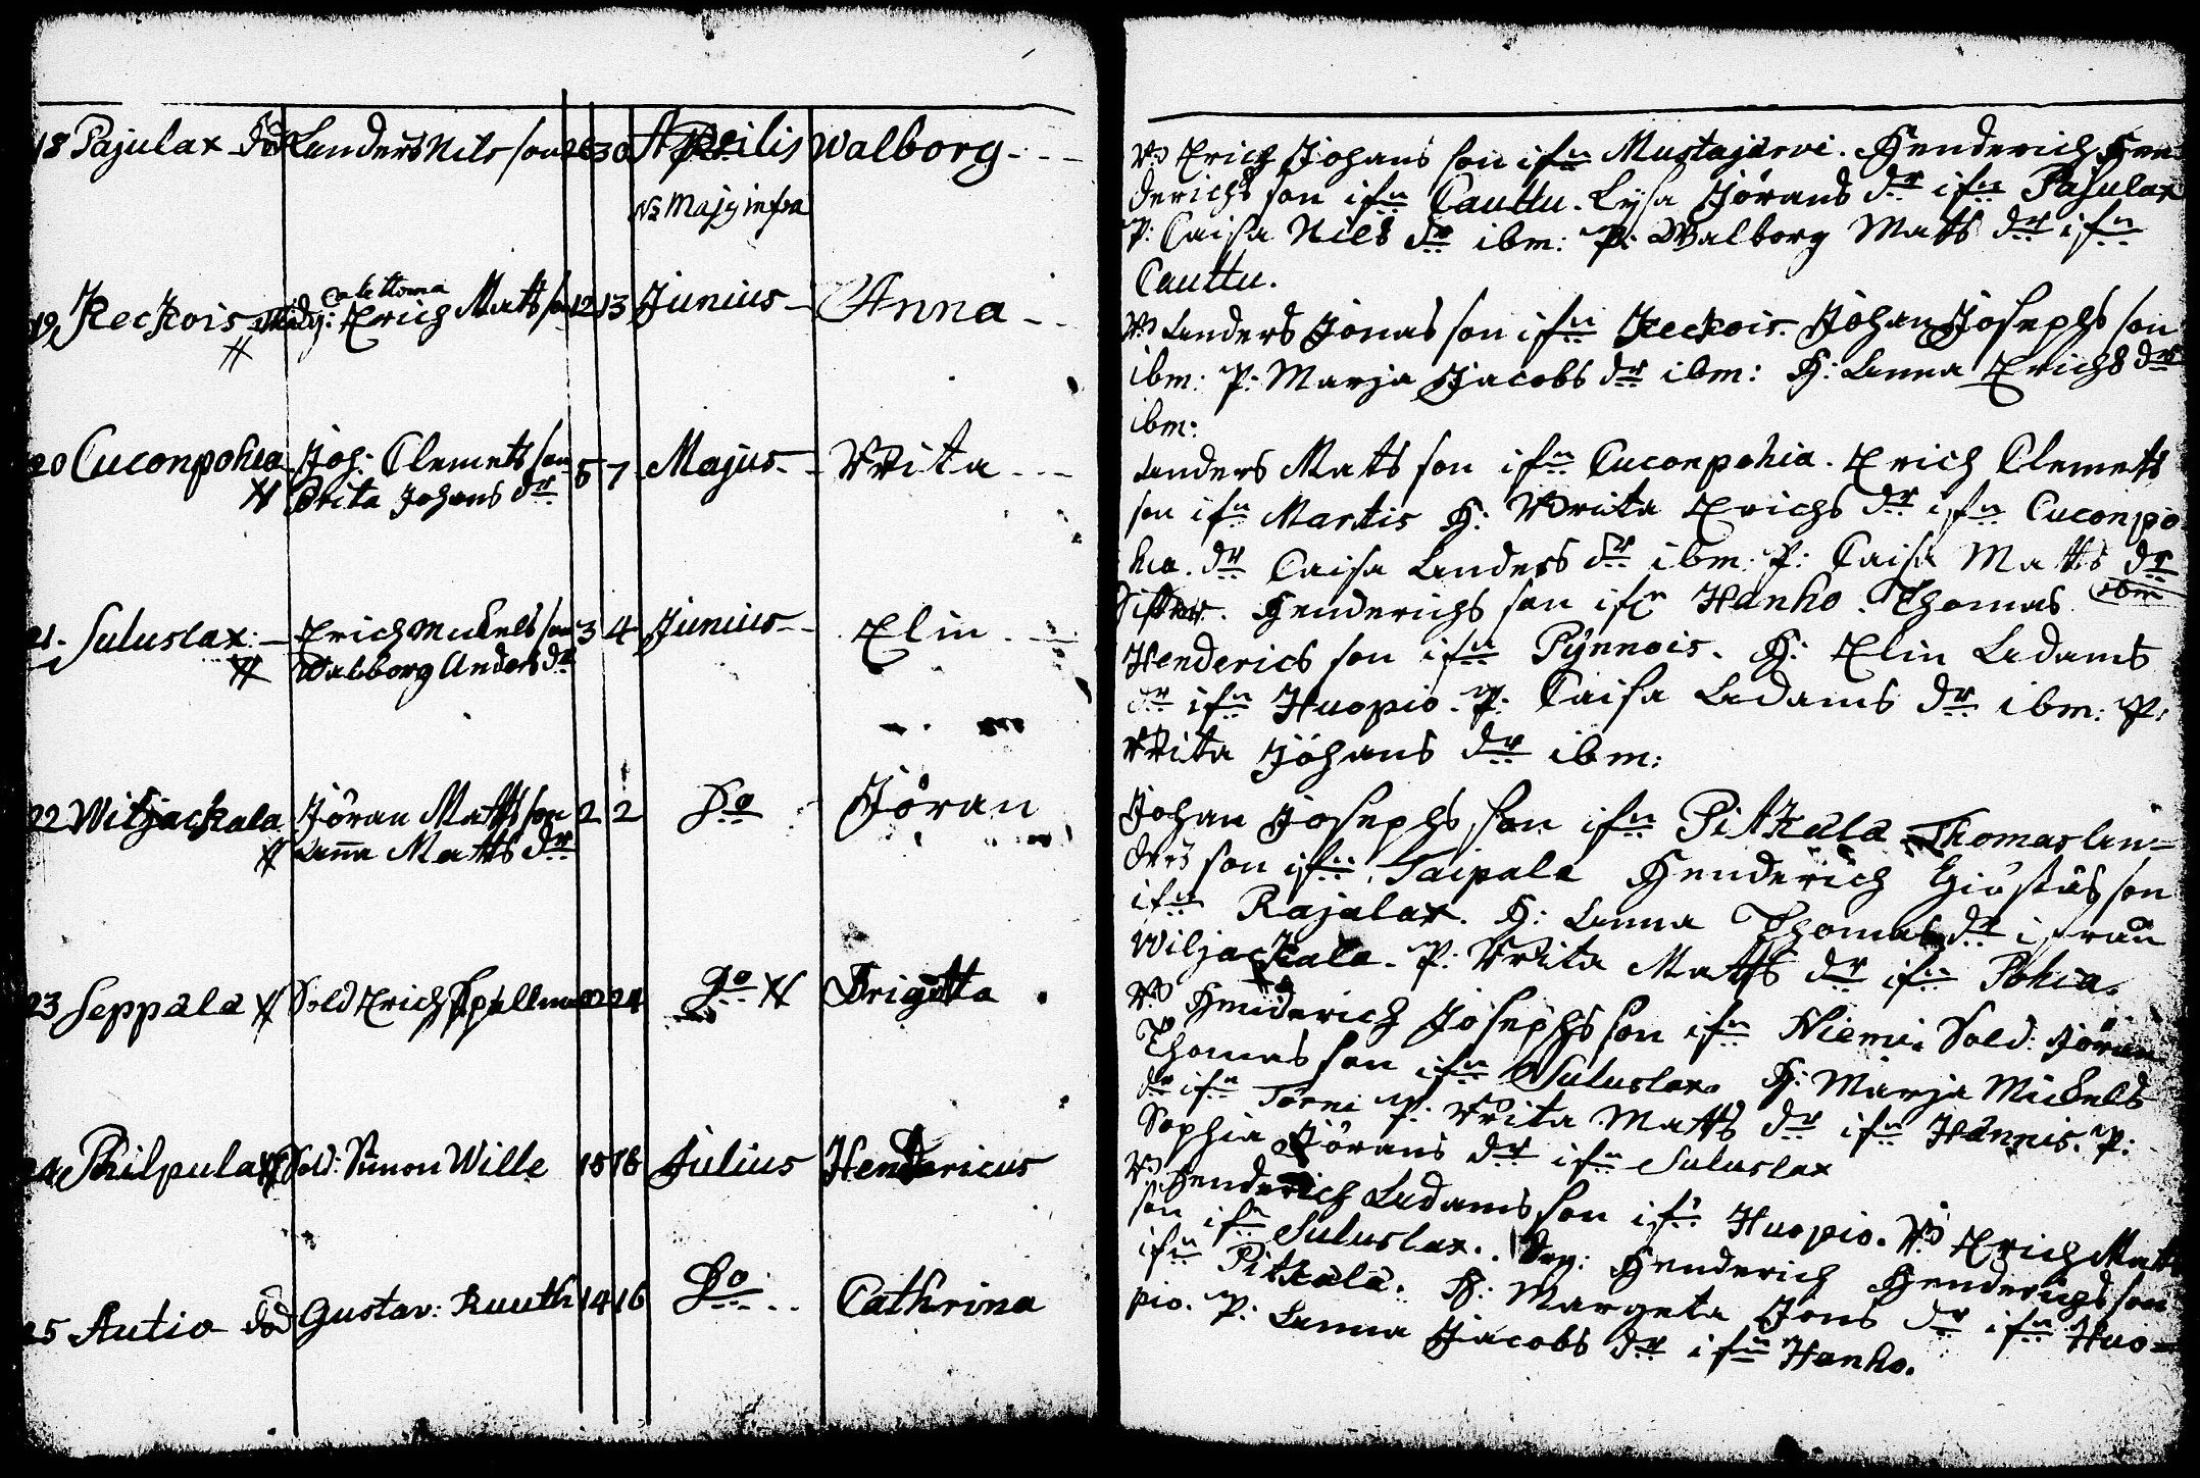 18 Pajulax död Anders Nils son 26 30 Aprilis Walborg
NB Maj
19, Keckois Erich Matts son 12 13 Junius Anna
20 Cuconpohia Joh: Clemets son 5 7 Majus Brita
Brita Johans dr
21. Suluslax: Erich Mickels son 3 4 Junius Elin
Walborg Anders dr
22 Wiljackala Jöran Matts son 2 2 Do Jöran
Anna Matts dr
23 Seppälä Sold Erich Spellman 22 24 Do Brigitta
24 Philpula Sold: Simon Wille 15 16 Julius Hendericus
25 Autio död Gustav: Ruuth 14 16 Do Cathrina
Erich Johans son ifrn Mustajärvi. Henderich Hen
derichs son ifrn Cauttu. Lisa Jörans dr ifrn Pajulax
P: Caisa Niels dr ibm: P: Walborg Matts dr ifrn
Cauttu.
Anders Jonas son ifrn Keckois. Johan Josephs son
ibm: P: Marja Jacobs dr ibm: H: Anna Erichs dr
ibm:
Anders Mats son ifrn Cuconpohia. Erich Clemets
son ifrn Martis H: Brita Erichs dr ifrn Cuconpo
hia. dr Caisa Anders dr ibm: P: Caisa Matts dr
ibm
Henderichs son ifrn Hanho. Thomas
Henderics son ifrn Pynnois. H: Elin Adams
dr ifrn Huopio. P: Caisa Adams dr ibm: P:
Brita Johans dr ibm:
Johan Josephs son ifrn Pitkälä Thomas An=
ders son ifrn Taipale Henderich Giöstas son
ifrn Rajalax. H: Anna Thomas dr ifrån
Wiljackala. P: Brita Matts dr ifrn Pohia.
Henderich Josephs son ifrn Niemi. Sold: Jöran
Thomas son ifrn Suluslax. H: Marja Mickels
dr ifrn Torni P: Brita Matts dr ifrn Hännis. P:
Sophia Jörans dr ifrn Suluslax
Henderich Adams son ifrn Huopio. Erich Matts
son ifrn Suluslax. Dr: Henderich Henderichs son
ifrn Pitkälä. H: Margeta Jons dr ifrn Huo=
pio. P: Anna Jacobs dr ifrn Hanho.